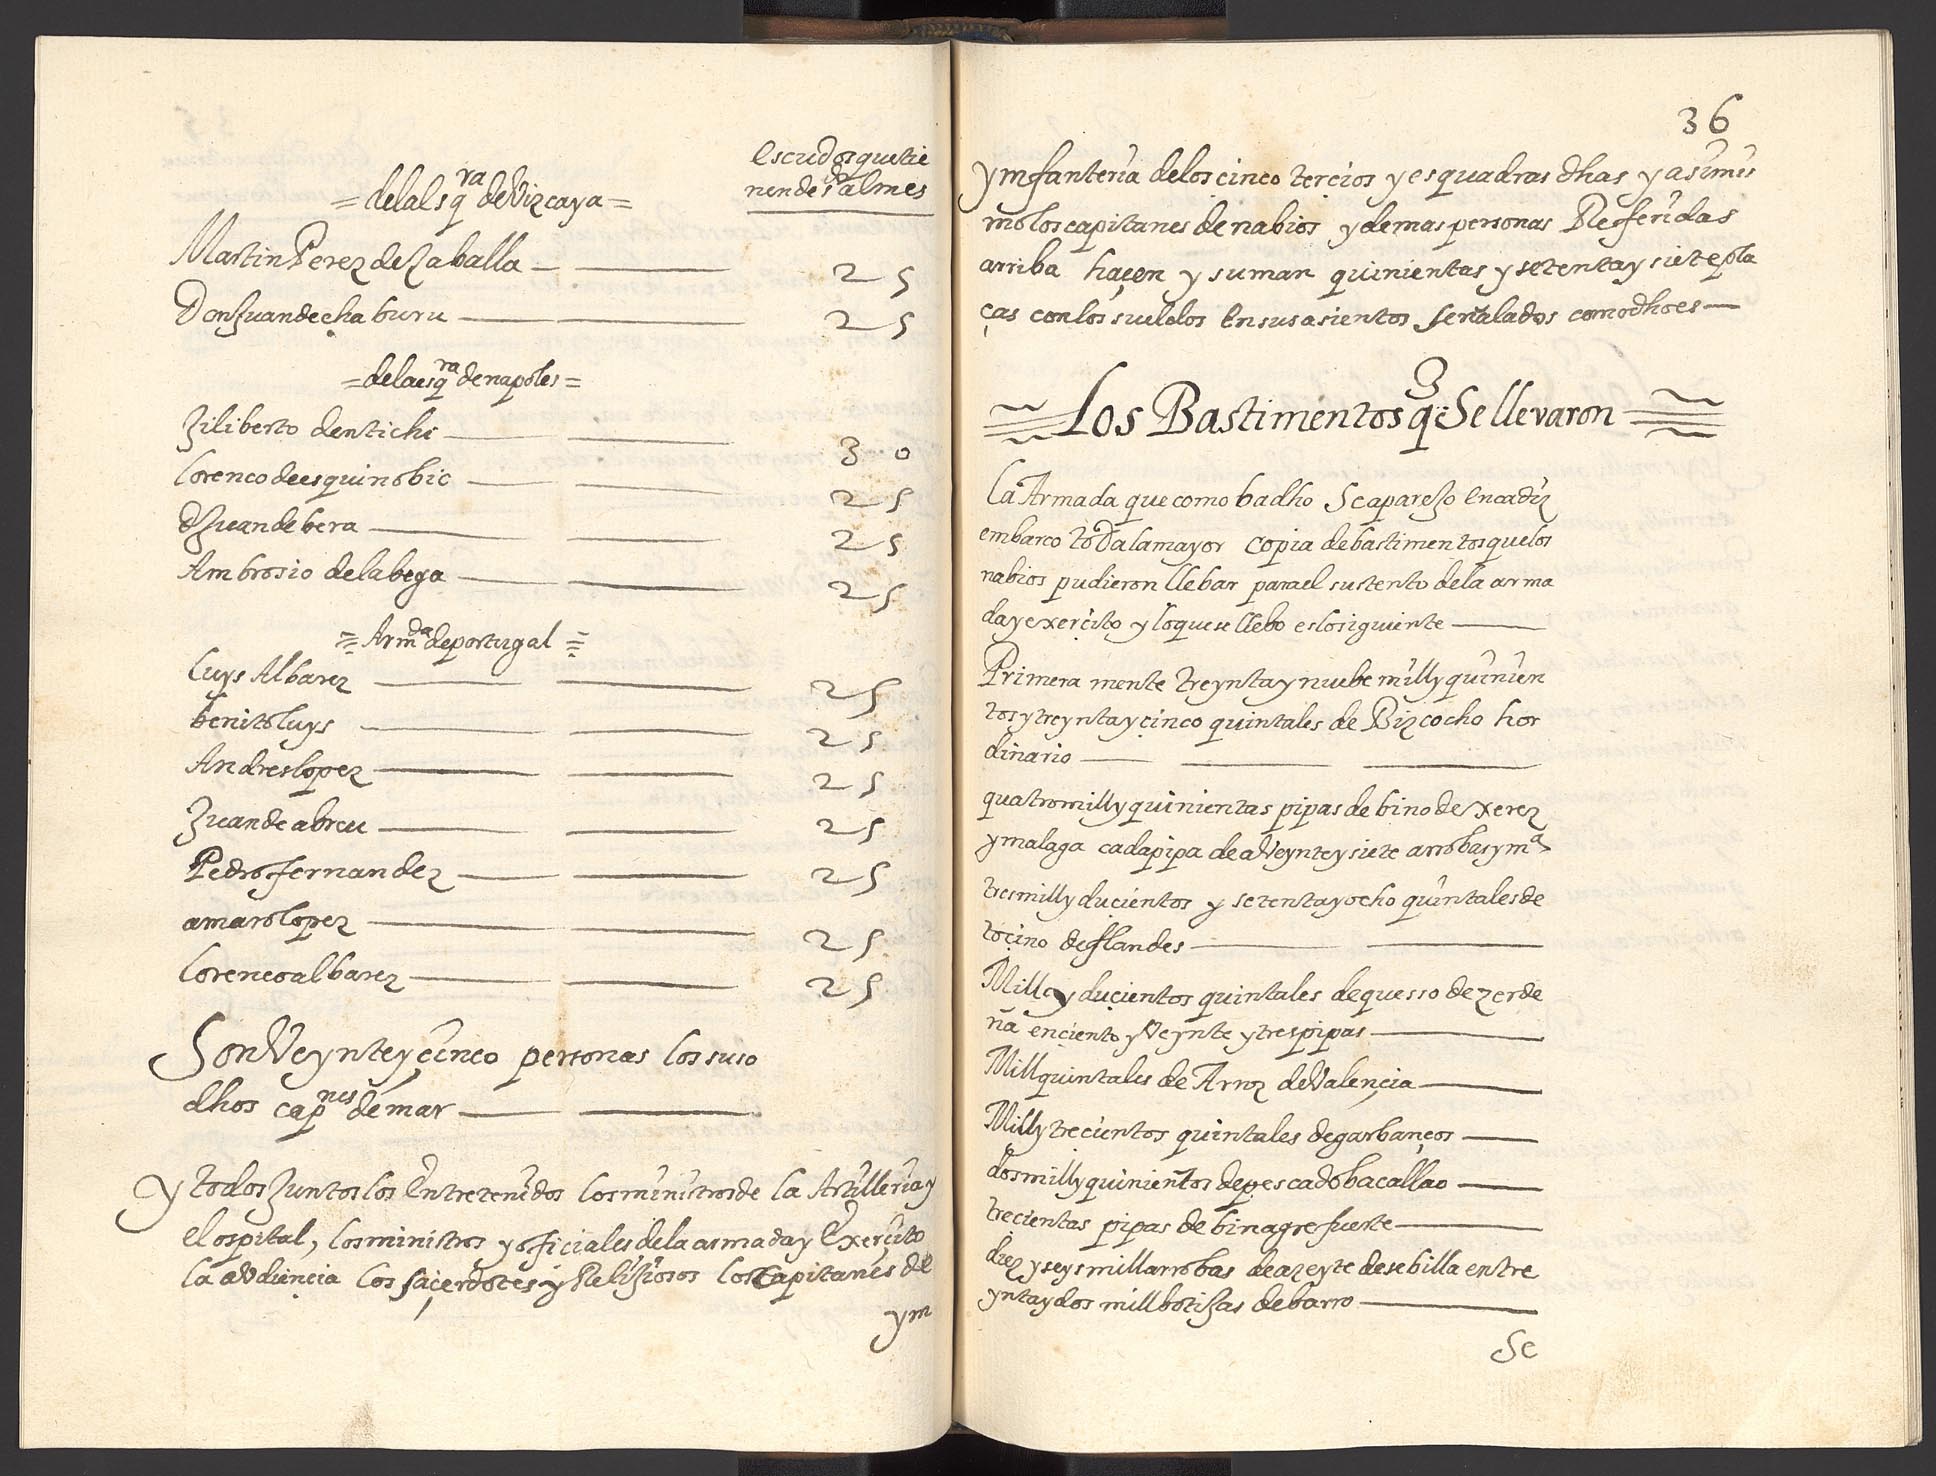 escudos que tie
nen de s.do al mes
= de la Isq.ra de Vizcaya =
Martin Perez de Zaballa — — 25
Don Juan de chaburu — — 25
= de la esq.ra de napoles =
Ziliberto dentichi — — 30
lorenco de esquinobic — — 25
d Juan de bera — — 25
Ambrosio de la bega — — 25
= Arm.da de portugal =
luys Albarez — — 25
benito luys — — 25
Andres lopez — — 25
Juan de abreu — — 25
Pedro fernandez — — 25
amaro lopez — — 25
lorenco albarez — — 25
Son Veynte y çinco personas los suso
dhos cap.nes de mar — —
y todos Juntos los Entretenidos los ministros de la Artilleria y
el ospital, los ministros y oficiales de la armada y Exerçito
la audiençia los saçerdotes y Relijiosos los Capitanes de
ym
36
ymfanteria de los cinco tercios y esquadras dhas y asimis
mo los capitanes de nabios y demas personas Refferidas
arriba haçen y suman quinientas y setenta y siete pla
ças con los sueldos en sus asientos señalados como dho es —
Los Bastimentos q̃ Se llevaron
la Armada que como ba dho Se aparejo en cadiz
embarco toda la mayor copia de bastimentos que los
nabios pudieron llebar para el sustento de la arma
da y exerçito y lo que se llebo es lo siguiente —
Primera mente treynta y nuebe mill y quinien
tos y treynta y çinco quintales de Bizcocho hor
dinario — — —
quatro mill y quinientas pipas de bino de xerez
y malaga cada pipa de a Veynte y siete arrobas y m.a
tres mill y ducientos y setenta y ocho quintales de
toçino de flandes — —
Mill y duçientos quintales de quesso de zerde
ña en çiento y Veynte y tres pipas —
Mill quintales de Arroz de Valençia —
Mill y trecientos quintales de garbanços —
dos mill y quinientos de pescado bacallao —
trecientas pipas de binagre fuerte —
diez y seys mill arrobas de azeyte de sebilla en tre
ynta y dos mill botijas de barro —
Se